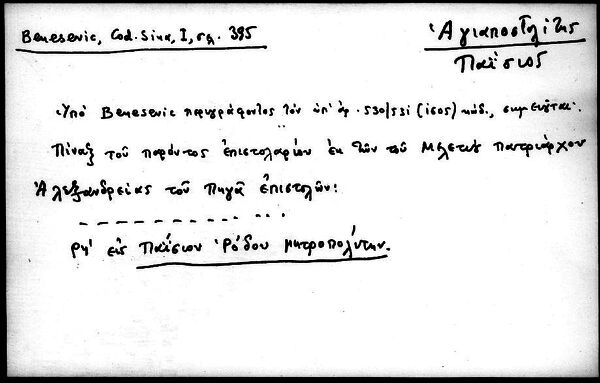 Benesevic, Cod. Sina, I, σελ. 395
Ἁγιαποστολίτης
Παΐσιος
Ὑπό Benesevic περιγράφοντος τόν ὑπ' ἀρ. 530/531 (1605) κώδ., σημειοῦται:
Πίναξ τοῦ παρόντος ἐπιστολαρίου ἐκ τῶν τοῦ Μελετίου Πατριάρχου
Ἀλεξανδρείας τοῦ Πηγᾶ ἐπιστολῶν:
– – – – – – – . . . – . . .
ρη' εἰς Παΐσιον Ῥόδου Μητροπολίτην.